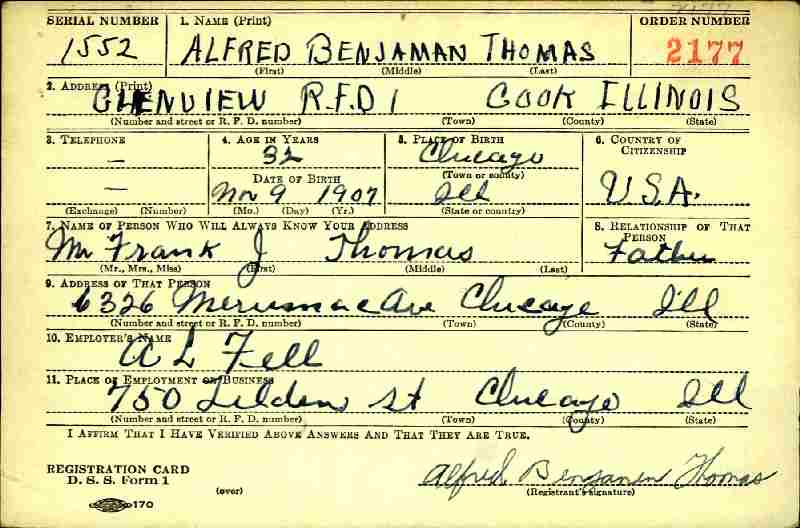 SERIAL NUMBER 1. NAME (Print) ORDER NUMBER
1552 ALFRED BENJAMAN THOMAS 2177
(First) (Middle) (Last)
2. ADDRESS (Print)
GLENVIEW R.F.D 1 COOK ILLINOIS
(Number and street or R. F. D. number) (Town) (County) (State)
3. TELEPHONE 4. AGE IN YEARS 5. PLACE OF BIRTH 6. COUNTRY OF CITIZENSHIP
— 32 Chicago
(Town or county)
— DATE OF BIRTH U.S.A.
Nov 9 1907 Ill
(Exchange) (Number) (Mo.) (Day) (Yr.) (State or country)
7. NAME OF PERSON WHO WILL ALWAYS KNOW YOUR ADDRESS 8. RELATIONSHIP OF THAT PERSON
Mr Frank J Thomas Father
(Mr., Mrs., Miss) (First) (Middle) (Last)
9. ADDRESS OF THAT PERSON
6326 Merrimac Ave Chicago Ill
(Number and street or R. F. D. number) (Town) (County) (State)
10. EMPLOYER'S NAME
A L Fell
11. PLACE OF EMPLOYMENT OR BUSINESS
750 Tilden St Chicago Ill
(Number and street or R. F. D. number) (Town) (County) (State)
I AFFIRM THAT I HAVE VERIFIED ABOVE ANSWERS AND THAT THEY ARE TRUE.
REGISTRATION CARD
D. S. S. Form 1 Alfred Benjamen Thomas
(over) (Registrant's signature)
170